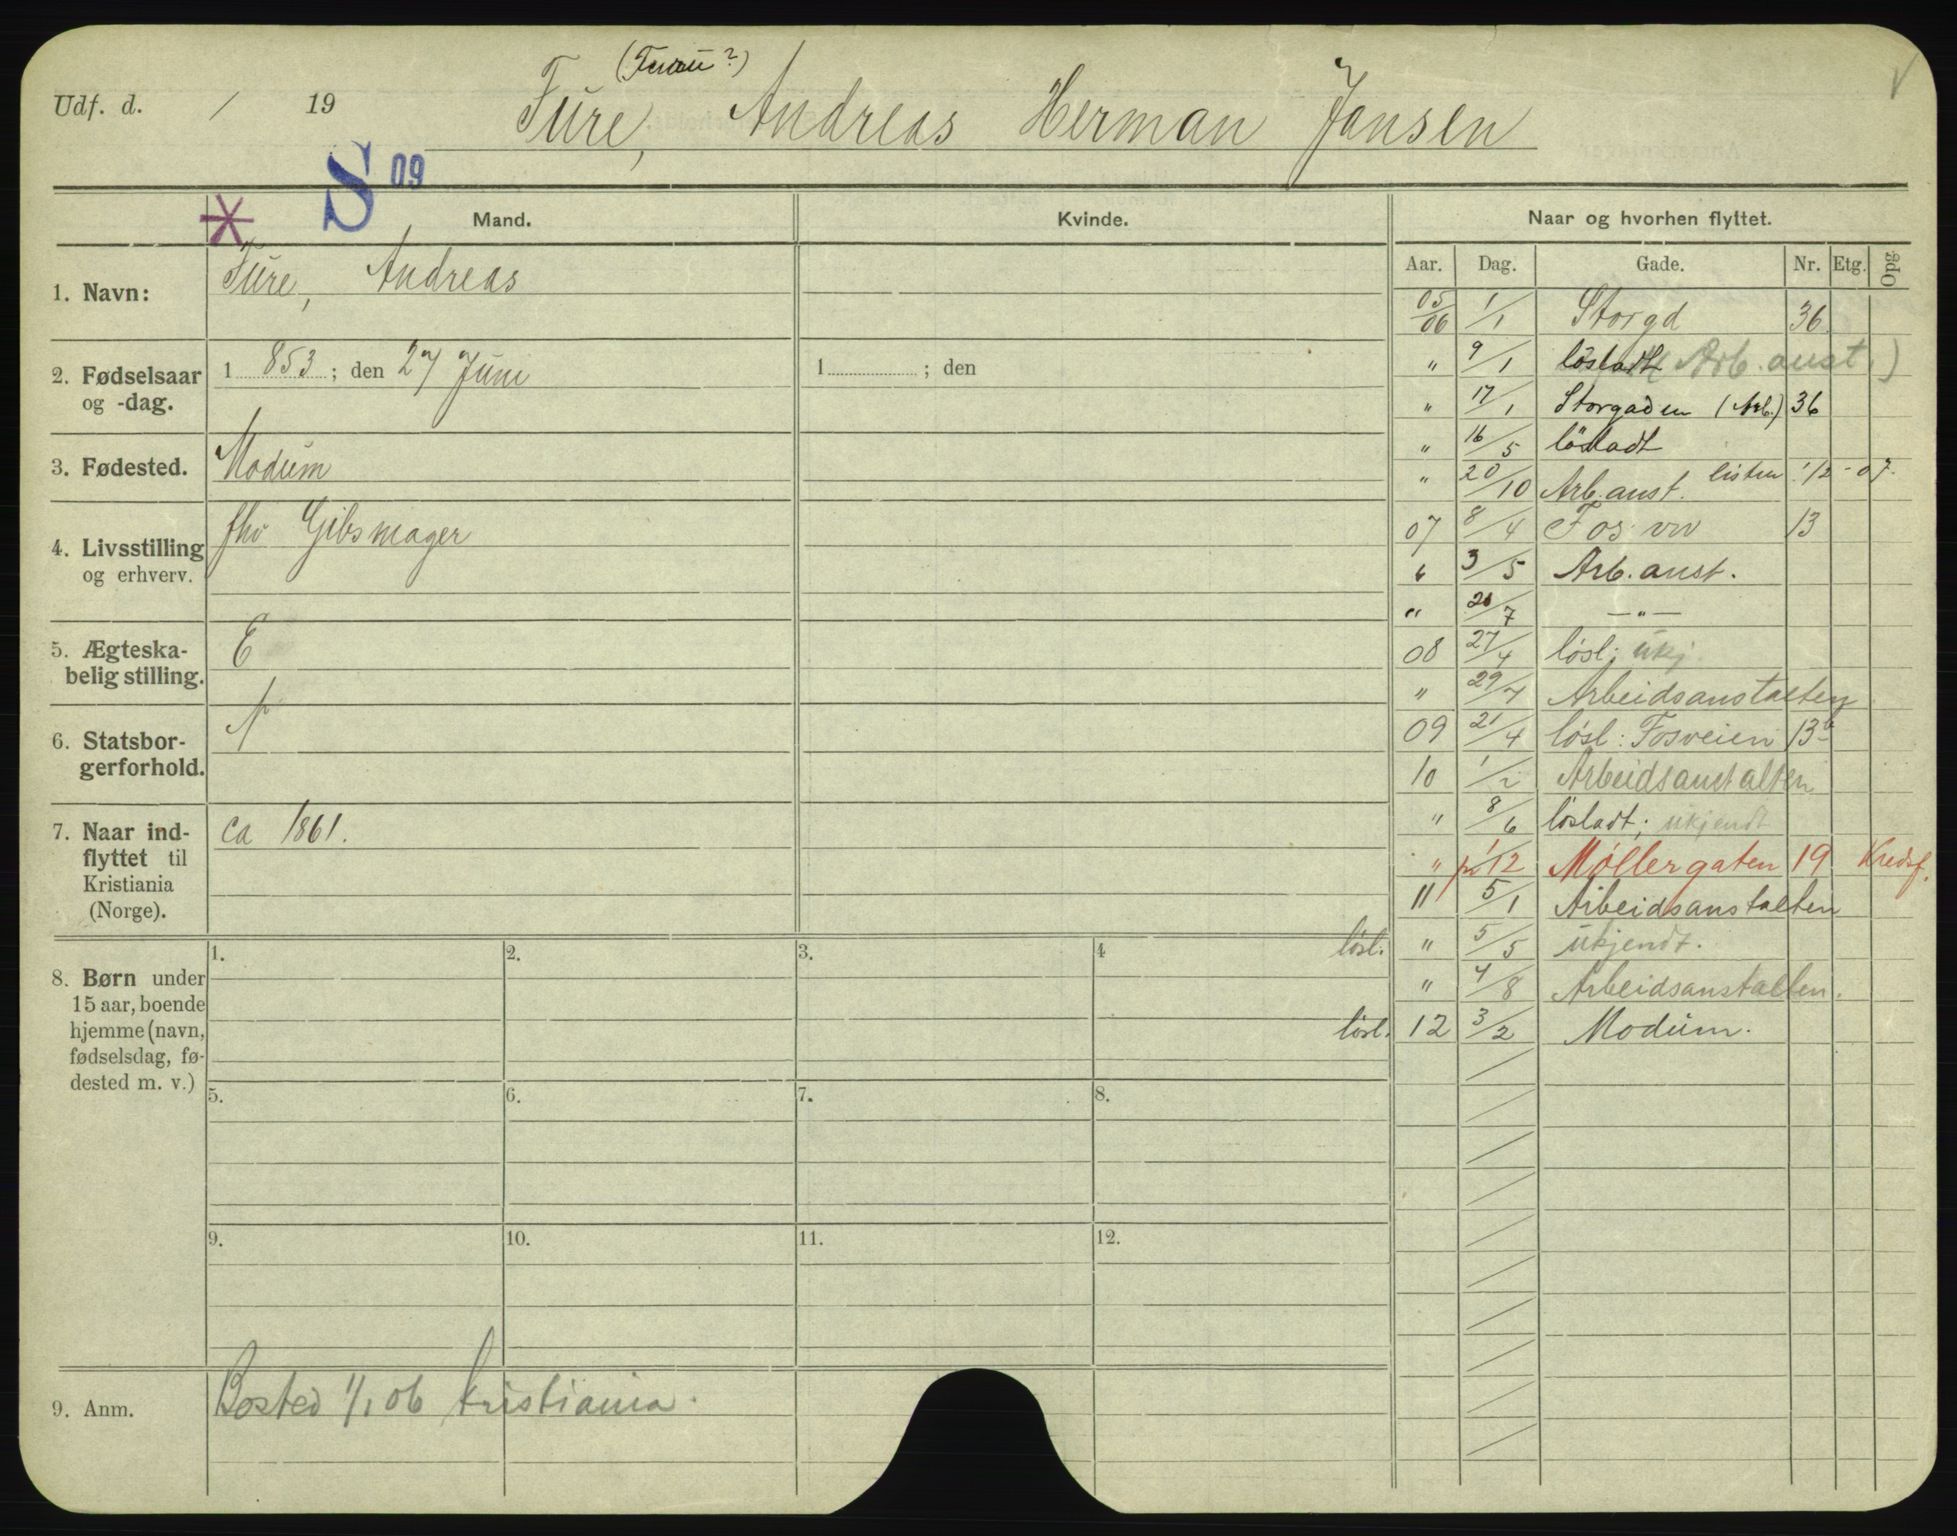 Udf. d. / 19
Ture, Andreas Herman Jansen
S 09
Mand. Kvinde. Naar og hvorhen flyttet.
Aar. Dag. Gade. Nr. Etg. Opg.
1. Navn: Ture, Andreas
2. Fødselsaar og -dag. 1 853 ; den 27 Juni 1 ; den
3. Fødested. Modum
4. Livsstilling og erhverv. fhv Gibsmager
5. Ægteska-
belig stilling. E
6. Statsbor-
gerforhold. N
7. Naar ind-
flyttet til
Kristiania
(Norge). ca 1861.
8. Børn under
15 aar, boende
hjemme (navn,
fødselsdag, fø-
dested m. v.)
1. 2. 3. 4
5. 6. 7. 8.
9. 10. 11. 12.
9. Anm. Bosted 1/1 06 Kristiania.
05/06 1/1 Storgd 36
" 9/1 lösladt (Arb. anst.)
" 17/1 Storgaden (Arb.) 36
" 16/5 lösladt
" 20/10 Arb. anst. listen 1/2 - 07.
07 8/4 Fos vv 13
" 3/5 Arb. anst.
" 20/7 — " —
08 27/4 løsl; ukj.
" 29/7 Arbeidsanstalten
09 21/4 løsl: Fosveien 13b
10 1/2 Arbeidsanstalten
" 8/6 løsladt; ukjendt
" pr 1/12 Møllergaten 19 Kredsf.
11 5/1 Arbeidsanstalten
løsl. " 5/5 Ukjendt.
" 4/8 Arbeidsanstalten.
løsl. 12 3/2 Modum.